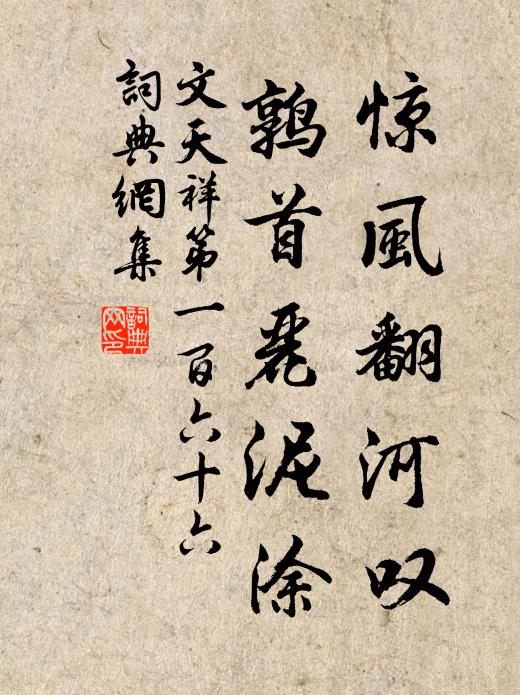 惊風翻河叹
鶉首麗泥涂
文天祥第一百六十六
詞典網集
詞典
网印